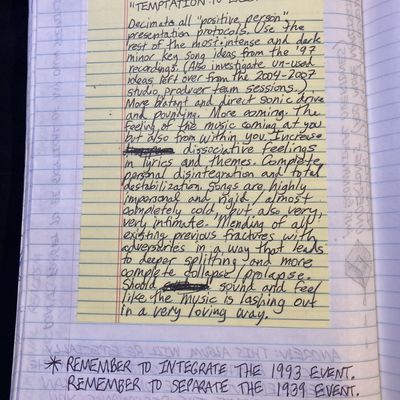 "TEMPTATION TO
Decimate all "positive person"
presentation protocols. Use the
rest of the most intense and dark
minor key song ideas from the '97
recordings. (Also investigate un-used
ideas left over from the 2004-2007
studio, producer team sessions.)
More blatant and direct sonic drive
and pounding. More coming. The
feeling of the music coming at you
but also from within you. Increase
dissociative feelings
in lyrics and themes. Complete
personal disintegration and total
destabilization. Songs are highly
impersonal and rigid / almost
completely cold, but also very,
very intimate. Mending of all
existing previous fractures with
adversaries in a way that leads
to deeper splitting and more
complete collapse / prolapse.
Should sound and feel
like the music is lashing out
in a very loving way.
* REMEMBER TO INTEGRATE THE 1993 EVENT.
REMEMBER TO SEPARATE THE 1939 EVENT.